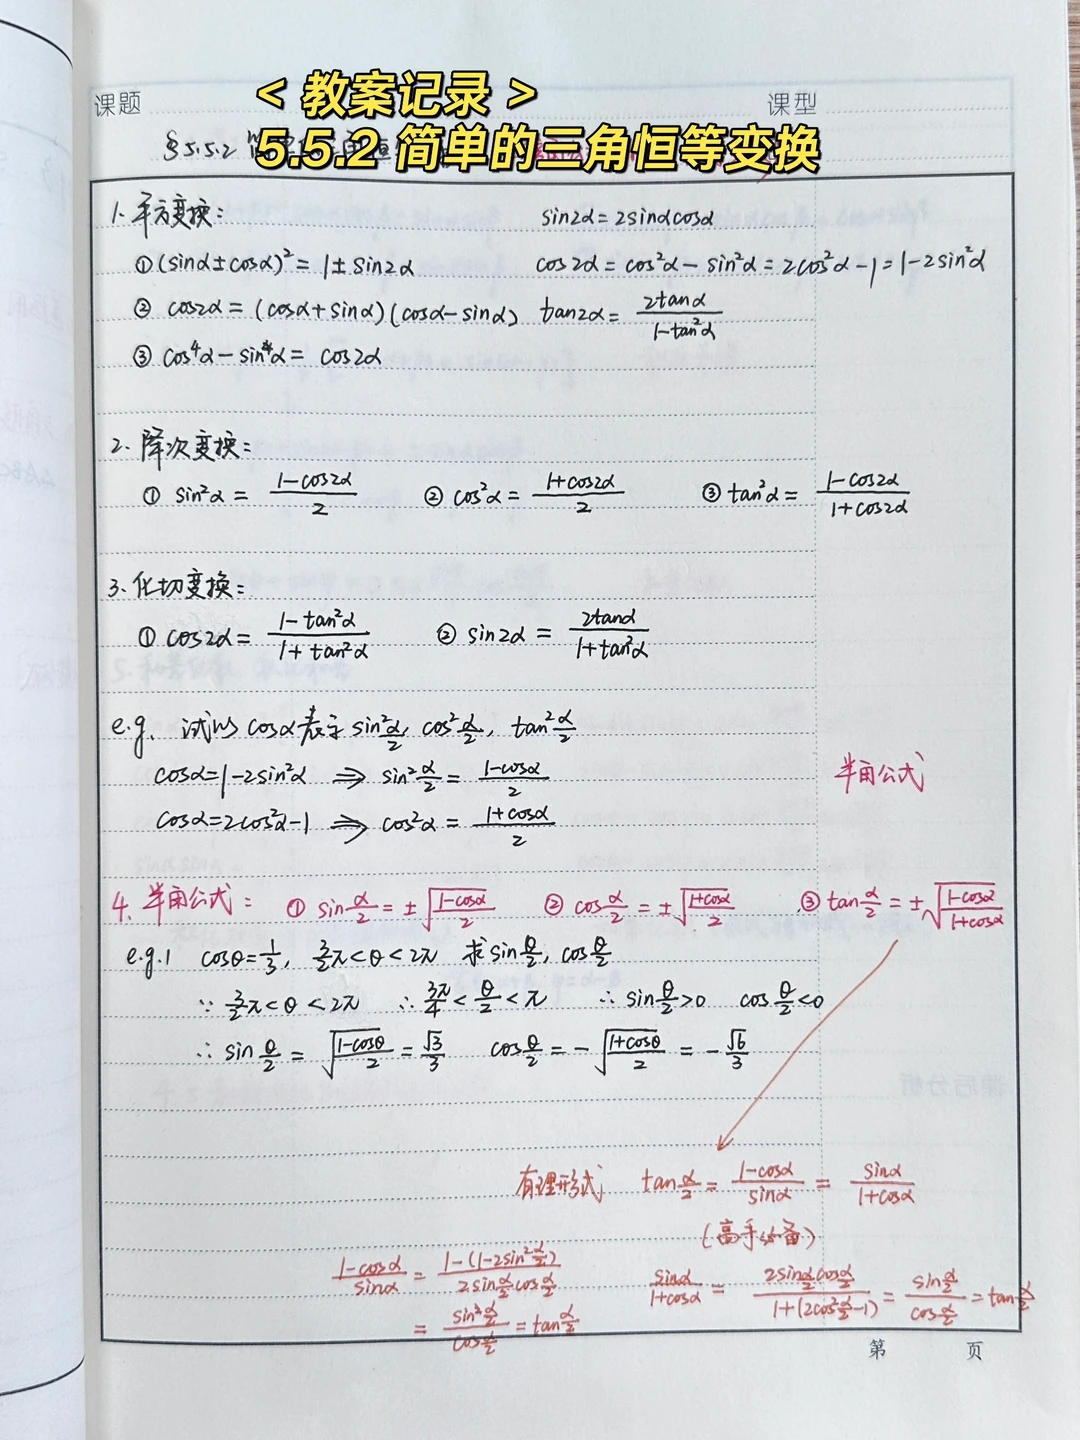 <教案记录>
课题 课型
5.5.2 简单的三角恒等变换
§5.5.2
1. 平方变换: sin2α=2sinαcosα
①(sinα±cosα)²=1±sin2α cos2α=cos²α-sin²α=2cos²α-1=1-2sin²α
② cos2α=(cosα+sinα)(cosα-sinα) tan2α=2tanα/(1-tan²α)
③ cos⁴α-sin⁴α= cos2α
2. 降次变换:
① sin²α=(1-cos2α)/2 ② cos²α=(1+cos2α)/2 ③ tan²α=(1-cos2α)/(1+cos2α)
3. 化切变换:
① cos2α=(1-tan²α)/(1+tan²α) ② sin2α=2tanα/(1+tan²α)
e.g. 试以cosα表示 sin²α/2, cos²α/2, tan²α/2
cosα=1-2sin²α ⇒ sin²α/2=(1-cosα)/2 半角公式
cosα=2cos²α-1 ⇒ cos²α=(1+cosα)/2
4. 半角公式: ① sinα/2=±√((1-cosα)/2) ② cosα/2=±√((1+cosα)/2) ③ tanα/2=±√((1-cosα)/(1+cosα))
e.g.1 cosθ=1/3, 3/2π<θ<2π 求sinθ/2, cosθ/2
∵ 3/2π<θ<2π ∴ 3π/4<θ/2<π ∴ sinθ/2>0 cosθ/2<0
∴ sinθ/2=√((1-cosθ)/2)=√3/3 cosθ/2=-√((1+cosθ)/2)=-√6/3
有理形式 tanα/2=(1-cosα)/sinα=sinα/(1+cosα)
(高手必备)
(1-cosα)/sinα=(1-(1-2sin²α/2))/(2sinα/2cosα/2) sinα/(1+cosα)=(2sinα/2cosα/2)/(1+(2cos²α/2-1))=(sinα/2)/(cosα/2)=tanα/2
=(sin²α/2)/(cosα/2)=tanα/2
第 页